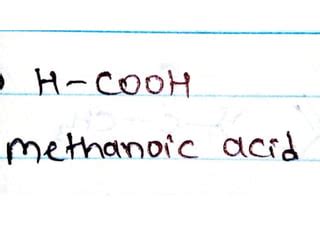 H-COOH
methanoic acid